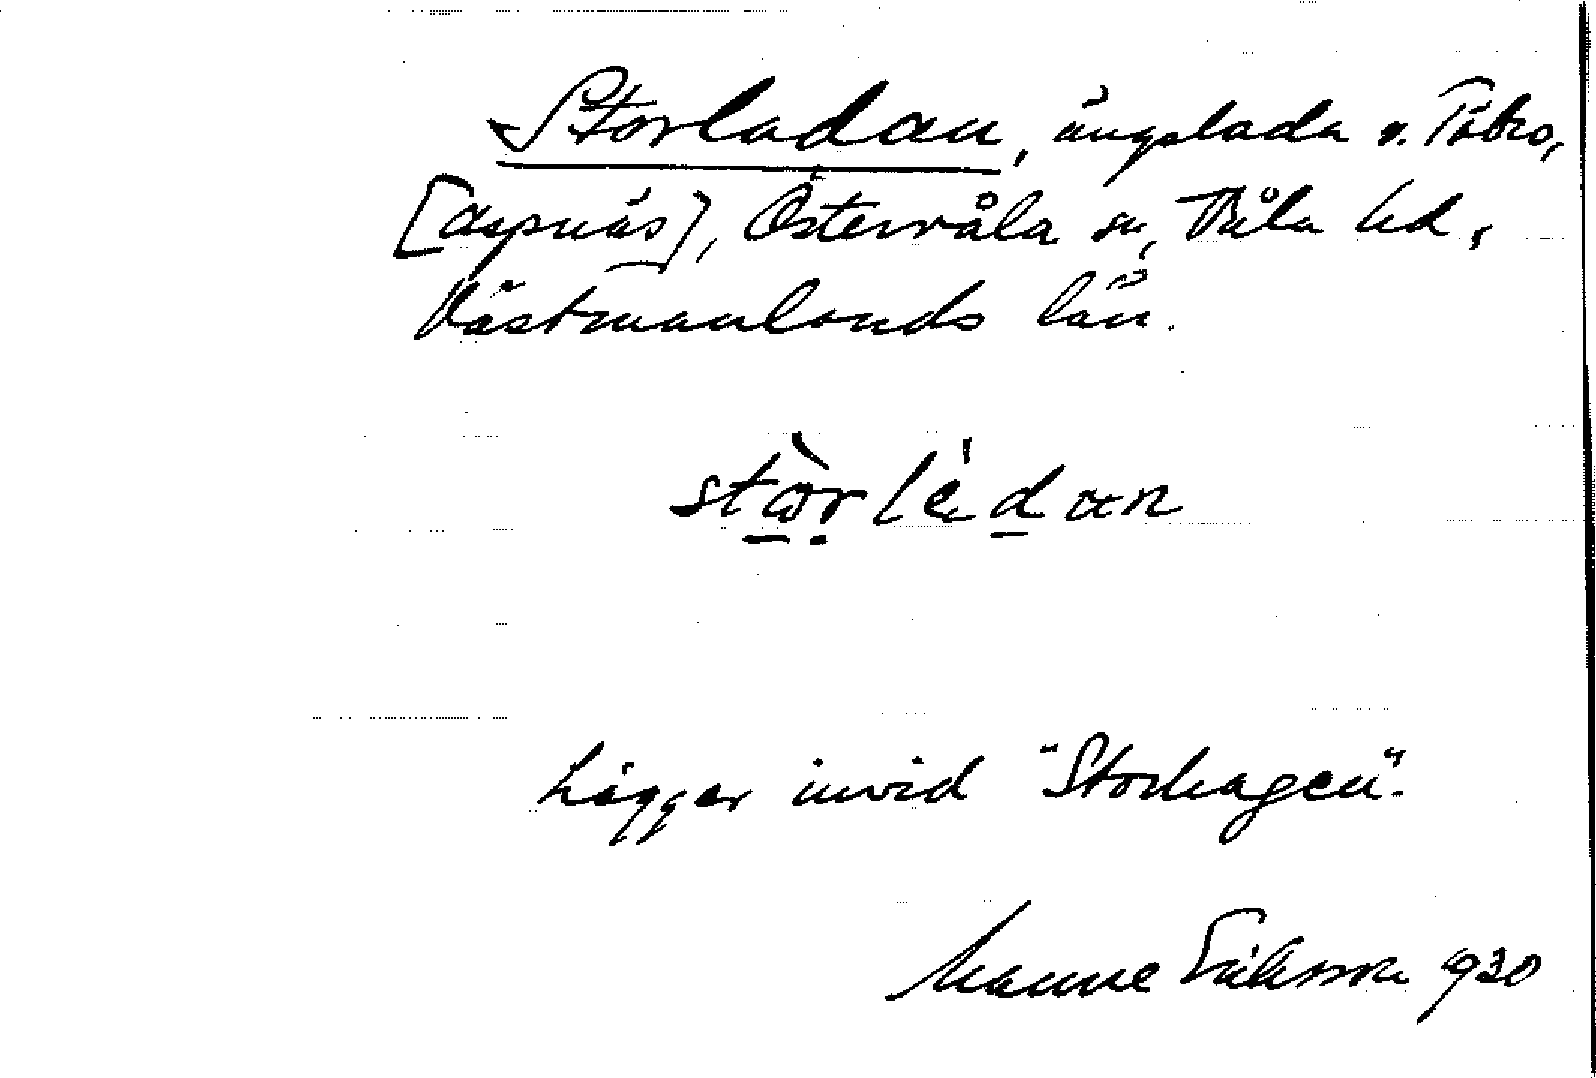 Storladan, ängslada v. Fåbro,
[Aspnäs], Östervåla sn, Våla hd,
Västmanlands län.
Ligger invid "Storhagen".
Manne Eriksson 930